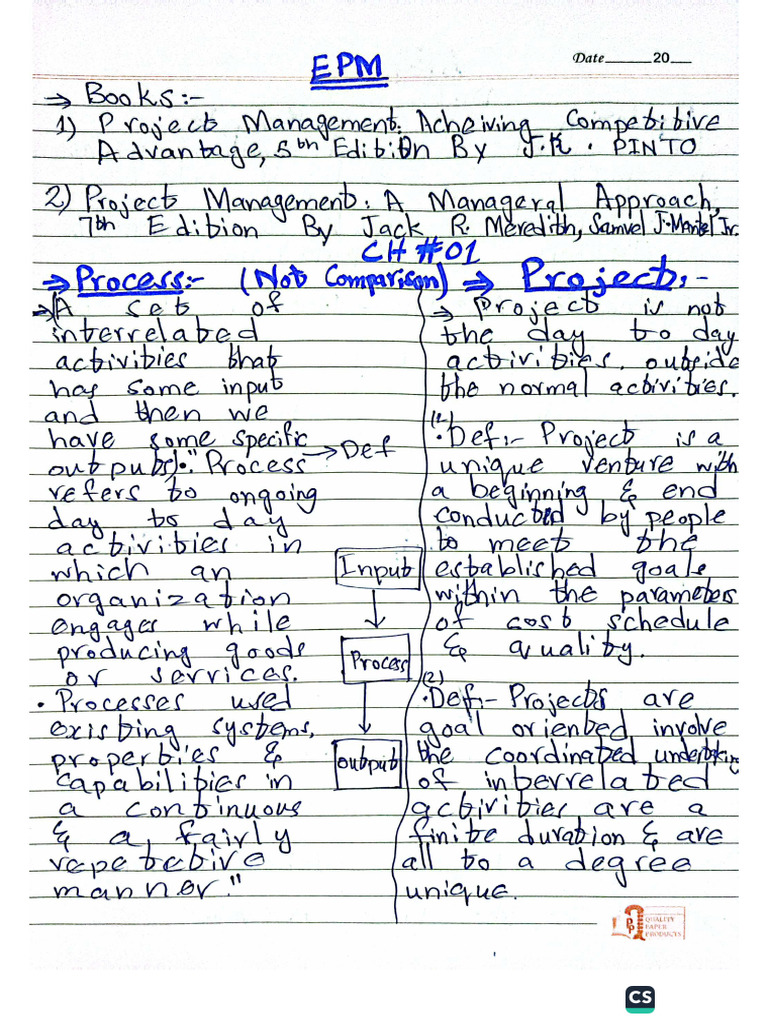 EPM
Date 20
→ Books:-
1) Project Management: Acheiving Competitive
Advantage, 5th Edition By J.K. PINTO
2) Project Management: A Manageral Approach,
7th Edition By Jack R. Meredith, Samuel J. Mantel Jr.
CH #01
→ Process:- (Not Comparison)
→ A set of
interrelated
activities that
has some input
and then we
have some specific
output(s). "Process → Def
refers to ongoing
day to day
activities in
which an
organization
engages while
producing goods
or services.
• Processes used
existing systems,
properties &
capabilities in
a continuous
& a fairly
repetetive
manner."
Input
Process
output
→ Project:-
→ Project is not
the day to day
activities. outside
the normal activities.
(1)
• Def:- Project is a
unique venture with
a beginning & end
conducted by people
to meet the
established goals
within the parameters
of cost schedule
& quality.
(2)
• Def:- Projects are
goal oriented involve
the coordinated undertaking
of interrelated
activities are a
finite duration & are
all to a degree
unique.
QUALITY
PAPER
PRODUCTS
CS